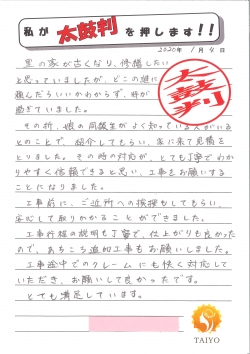 私が太鼓判を押します!!
2020年1月8日
里の家が古くなり、修繕したい
と思っていましたが、どこの誰に
頼んだらいいかわからず、時が
過ぎていました。
その折、娘の同級生がよく知っている人がいる
とのことで、紹介してもらい、家に来て見積を
とりました。その時の対応が、とても丁寧でわか
りやすく信頼できると思い、工事をお願いする
ことになりました。
工事前に、ご近所への挨拶もしてもらい、
安心して取りかかることができました。
工事行程の説明も丁寧で、仕上がりも良かった
ので、あちこち追加工事もお願いしました。
工事途中でのクレームにも快く対応して
いただき、お願いして良かったです。
とても満足しています。
太鼓判
TAIYO